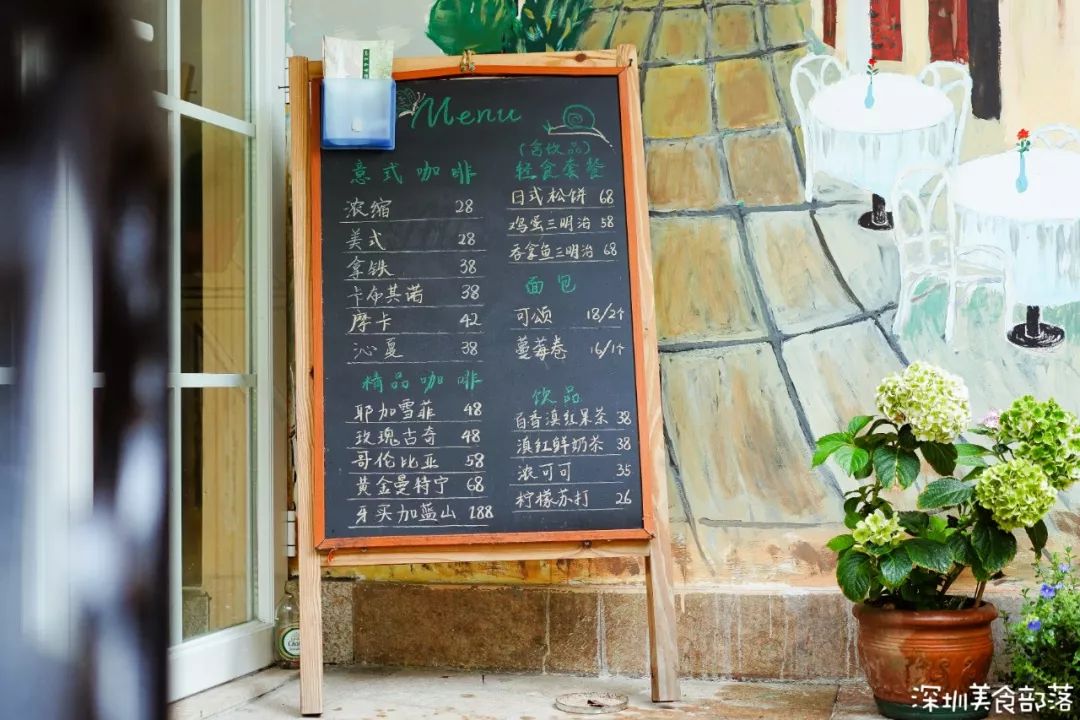 Menu
意式咖啡
浓缩 28
美式 28
拿铁 38
卡布其诺 38
摩卡 42
沁夏 38
精品咖啡
耶加雪菲 48
玫瑰古奇 48
哥伦比亚 58
黄金曼特宁 68
牙买加蓝山 188
(含饮品)
轻食套餐
日式松饼 68
鸡蛋三明治 58
吞拿鱼三明治 68
面包
可颂 18/2个
蔓莓卷 16/1个
饮品
百香滇红果茶 38
滇红鲜奶茶 38
浓可可 35
柠檬苏打 26
深圳美食部落